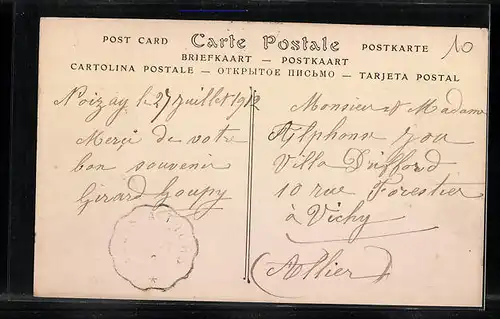 10
POST CARD Carte Postale POSTKARTE
BRIEFKAART — POSTKAART
CARTOLINA POSTALE — ОТКРЫТОЕ ПИСЬМО — TARJETA POSTAL
Noizay le 27 juillet 1912
Merçi de votre
bon souvenir
Girard Goupy
Monsieur et Madame
Alphonse
Villa
10 rue Forestier
à Vichy
(Allier)